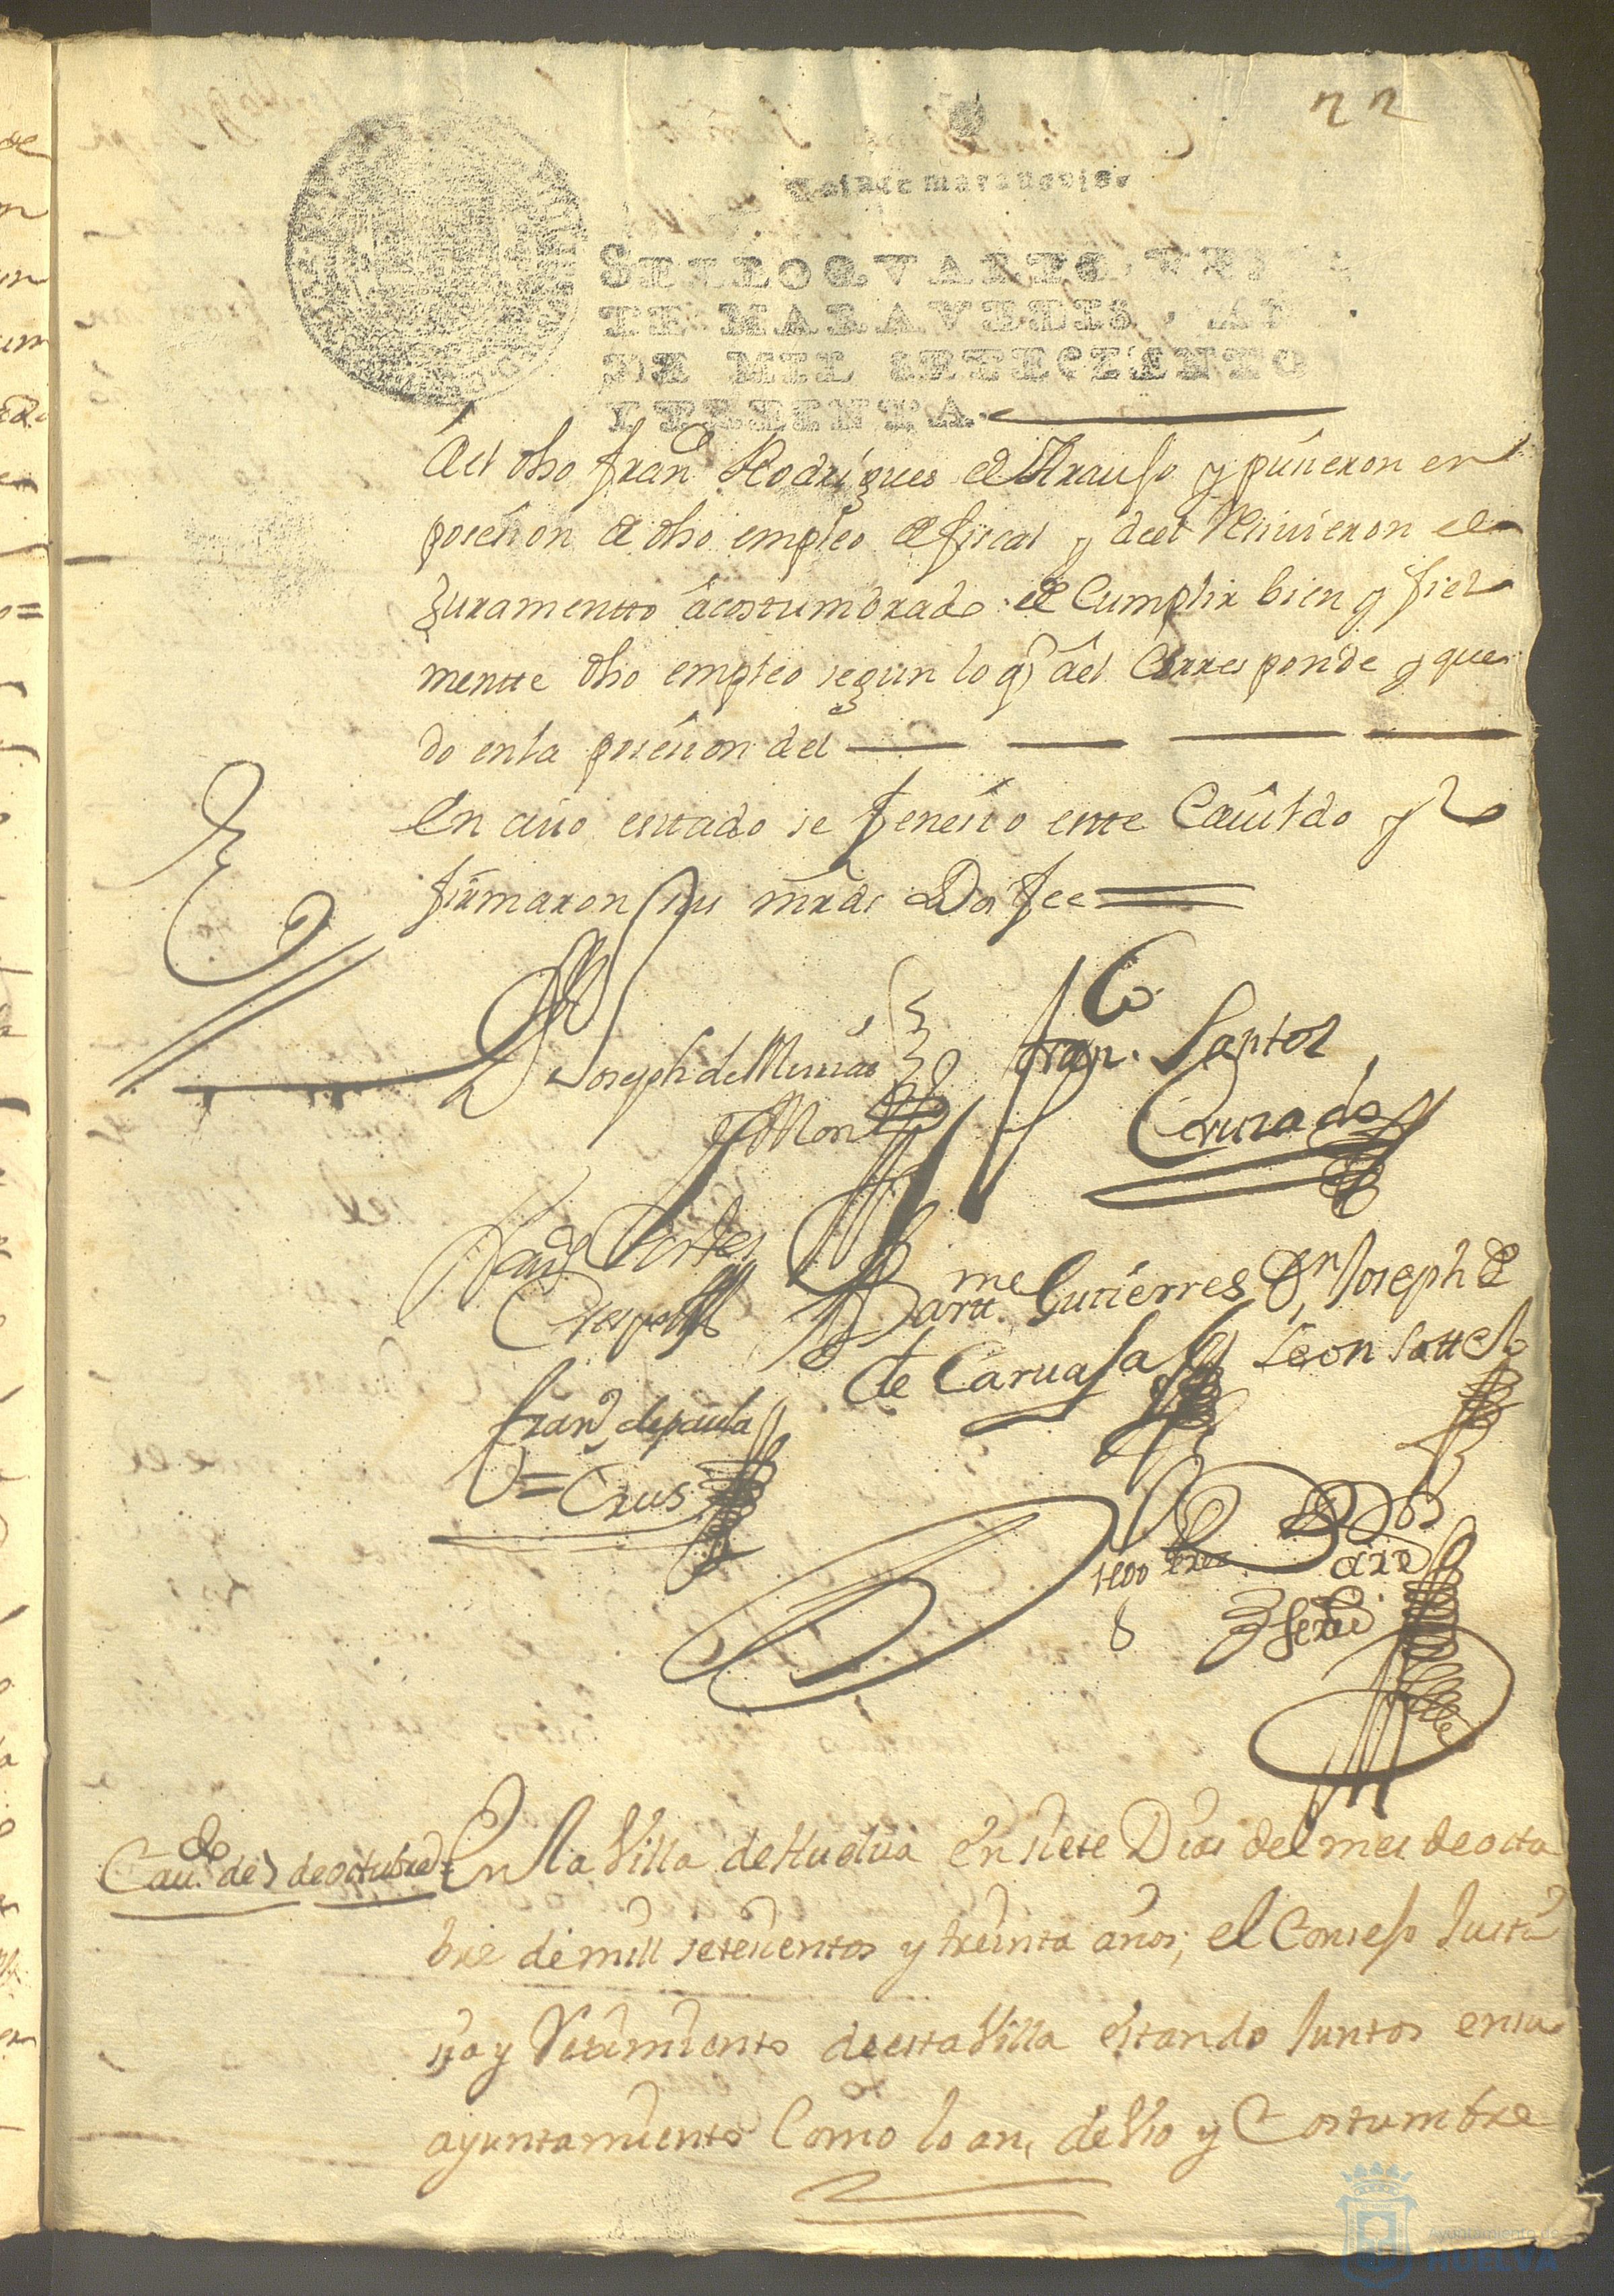 22
Veinte maravedis.
SELLO QVARTO, VEIN
TE MARAVEDIS, AÑ
DE MIL SETECIENTO
TREINTA.
Ael dho fran.co Rodrigues de Araujo y pusieron en
posesion de dho empleo de fiscal y deel Resivieron el
Juramentto acostumbrado de Cumplir bien y fiel
mentte dho empleo segun lo q ael Corresponde y que
do enla posesion del
En cuio esttado se fenesio estte Cauildo y lo
firmaron sus mrds Doi fee
Joseph de
Fran.co Santos
Fran.co Cortes
Crespo
Bartt.me Gutierres
Dn Joseph de
de Caruajal
Leon Sottelo
fran.co de paula
Cruz
Cau.do de 7 de octubre
En la Villa de Huelua en siete Dias del mes de octu
bre de mill setesientos y treinta años; el Consejo Justi
sia y Reximiento de esta Villa estando Juntos en su
ayuntamiento Como lo an, de Vso y Costumbre
Ayuntamiento de
HUELVA